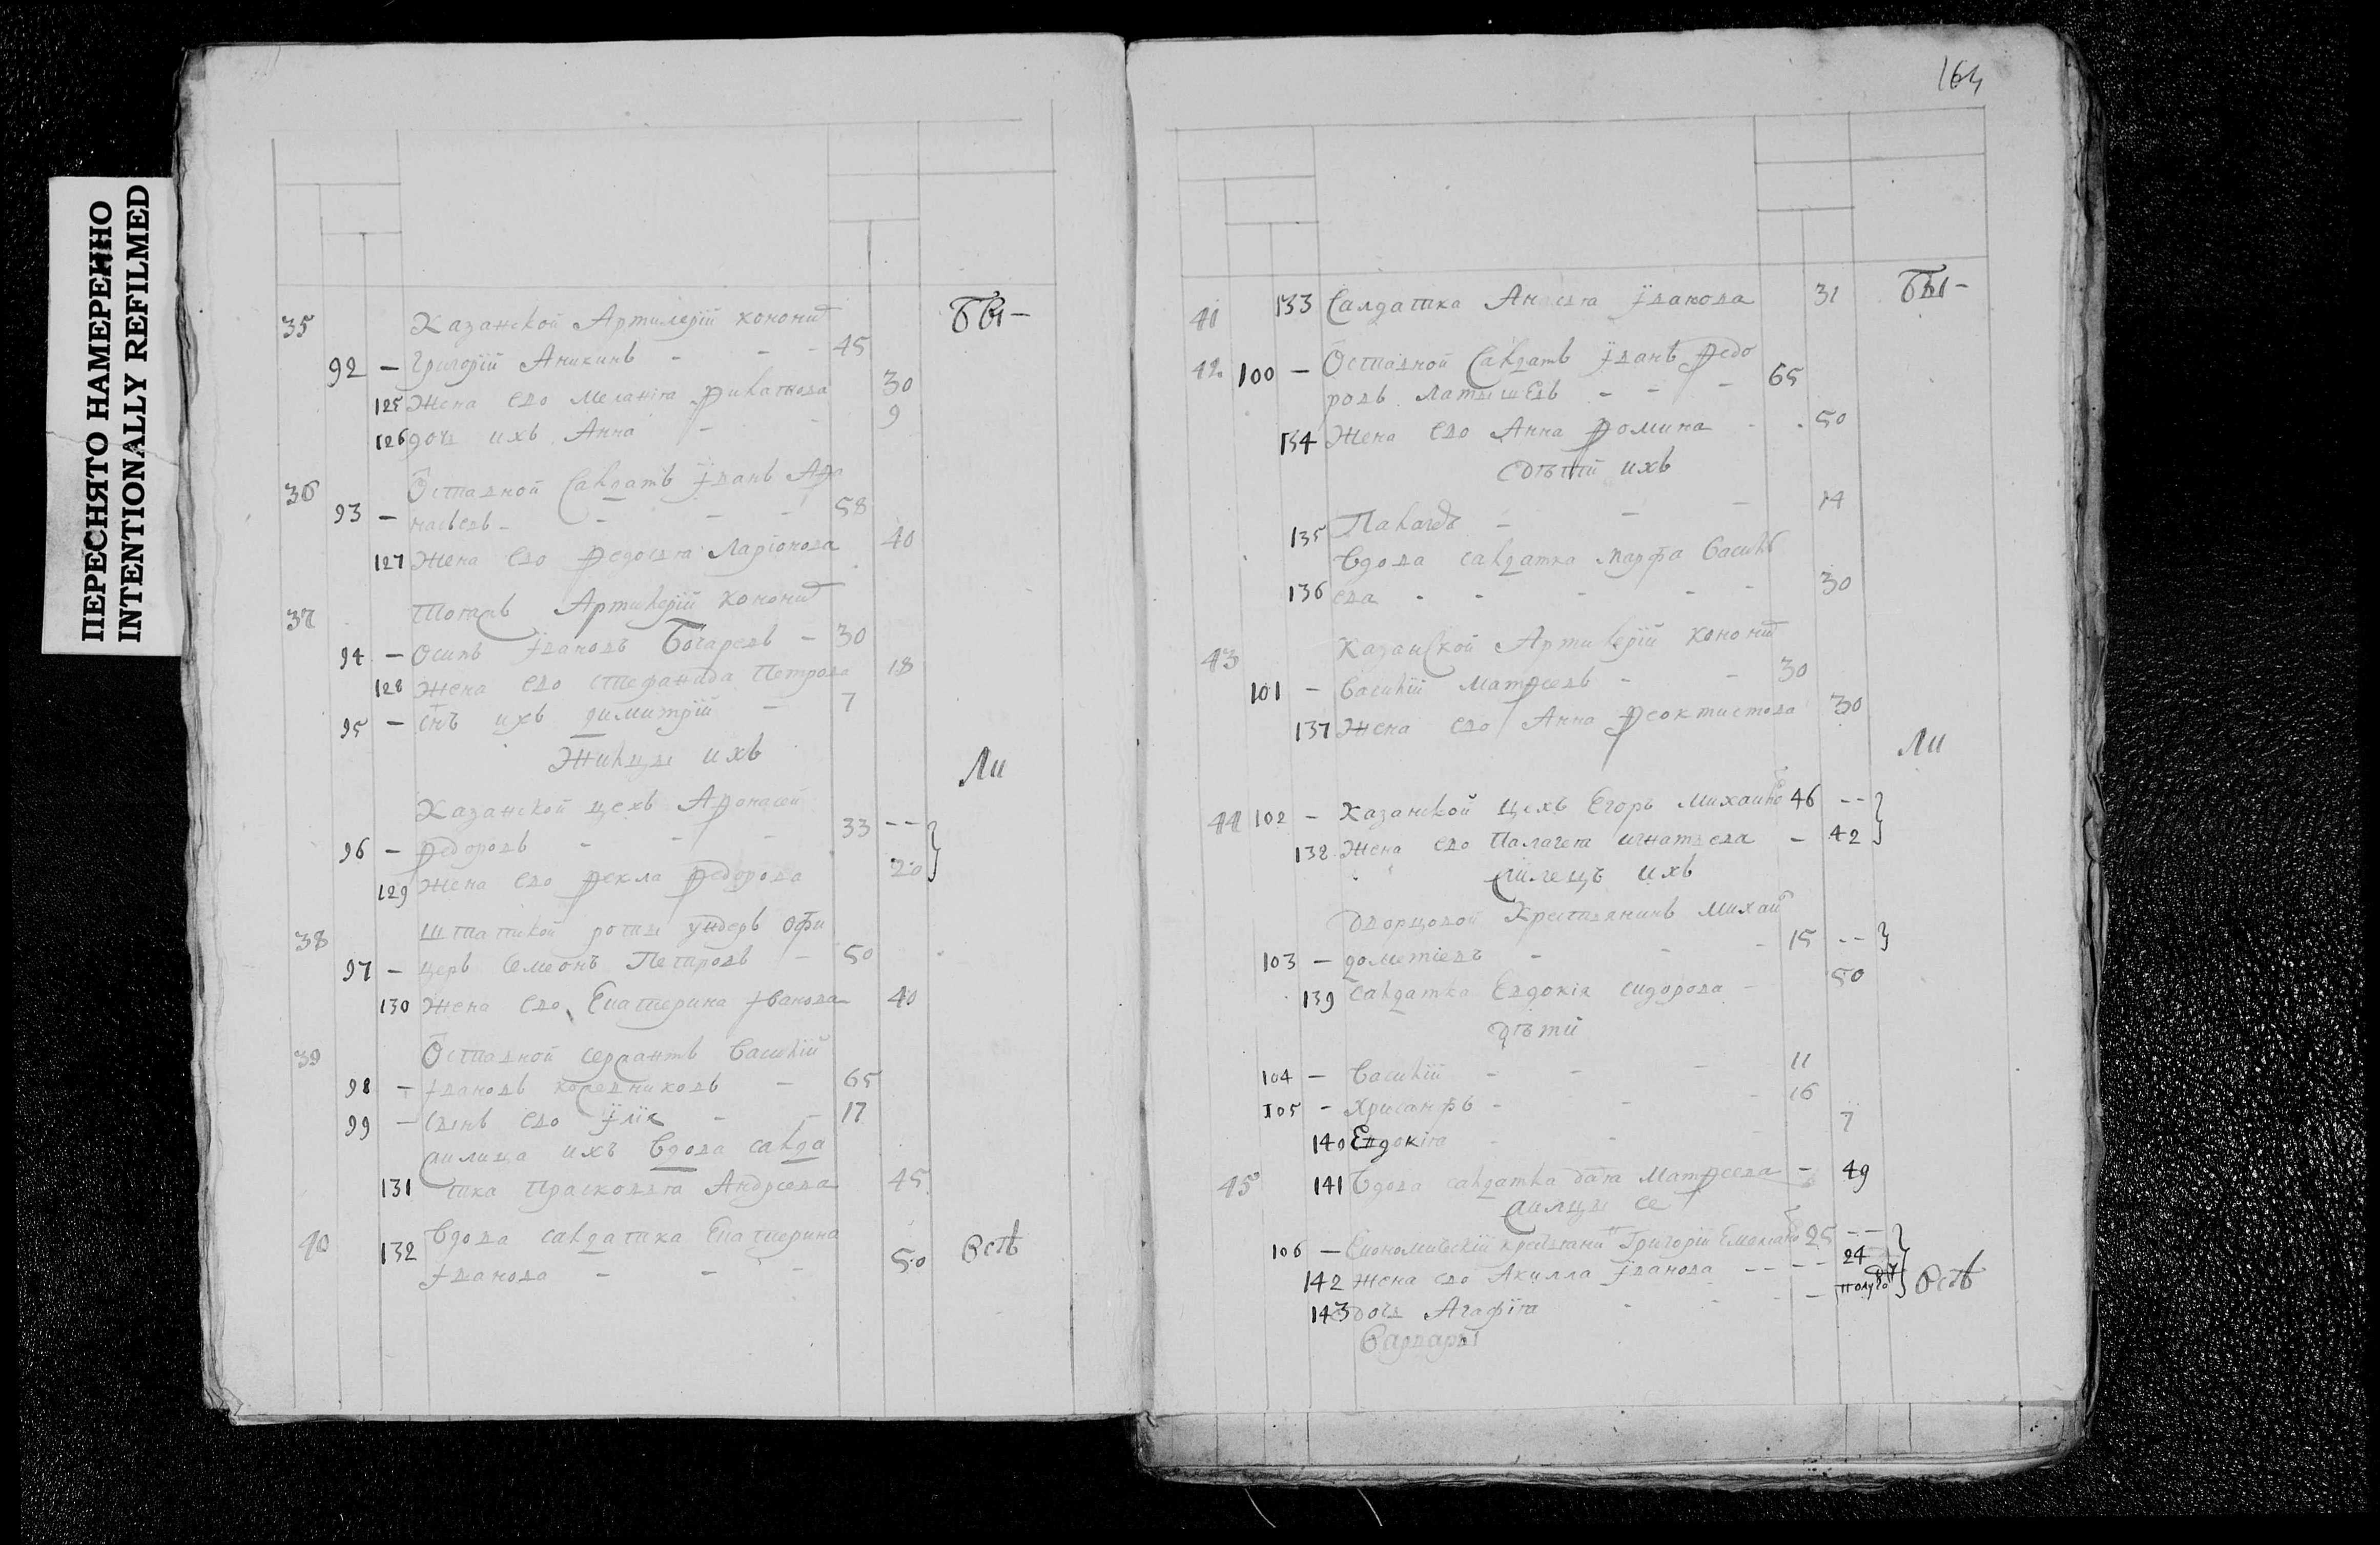 ПЕРЕСНЯТО НАМЕРЕННО
INTENTIONALLY REFILMED
35 Казанской Артилерїи канонир
92 — Григорїй Аникинъ - - - 45
125 Жена ево Меланїя 30
126 дочь ихъ Анна - - 9
Бы-
36 Отставной Салдатъ Ѵванъ Афо
93 — насьевъ - - - - 58
127 Жена ево Ѳедосья Ларїонова 40
37 Тогожъ Артилерїи канонир
94 — Осипъ Ѵвановъ Бочаревъ - 30
128 Жена ево Стефанида Петрова 18
95 — снъ ихъ Димитрїй - 7
Жильцы ихъ
Ли
Казанской цехъ Афонасей
96 — Ѳедоровъ - - - 33 --
129 Жена ево Ѳекла Ѳедорова 20
38 Штатной роты ундеръ офи
97 — церъ Семеонъ Петровъ - 50
130 Жена ево Екатерина Ѵванова 40
39 Отставной сержантъ Василїй
98 — Ѵвановъ Коревниковъ - 65
99 — Сынъ ево Ѵлїя - - 17
жилица ихъ вдова салда
131 тка Прасковья Андреева 45
40 132 Вдова салдатка Екатерина
Ѵванова - - - 50
Всѣ
164
41 133 Салдатка Ѵванова 31
Бы-
42 100 — Отставной Салдатъ Ѵванъ Ѳедо
ровъ Латышевъ - - - 65
134 Жена ево Анна Ѳомина - - 50
дѣти ихъ
135 Палагея - - - 14
Вдова салдатка Марфа Василь
136 ева - - - - - 30
43 Казанской Артилерїи канонир
101 — Василїй Матфеевъ - - 30
137 Жена ево Анна Ѳеоктистова 30
Ли
44 102 — Казанской цехъ Егоръ Михаило 46 --
138 Жена ево Палагея Игнатьева - 42
жилецъ ихъ
Дворцовой Крестьянинъ Михай
103 — Дометїевъ - - - 15 --
139 Салдатка Евдокїя Сидорова - 50
дѣти
104 — Василїй - - - 11
105 — Хрисанфъ - - - 16
140 Евдокїя - - - 7
45 141 Вдова салдатка Дарья Матфеева - 49
жилцы ее
106 — Економическїй крестьянин Григорїй Емельяно 25 --
142 Жена ево Акилла Ѵванова - - - - 24
143 дочь Агафїя - - - полуго
Варвары
Всѣ